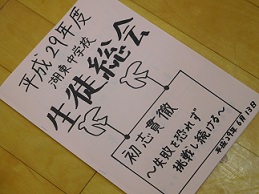 平成29年度
湖東中学校
生徒総会
初志貫徹
~失敗を恐れず
挑戦し続ける~
平成29年6月13日